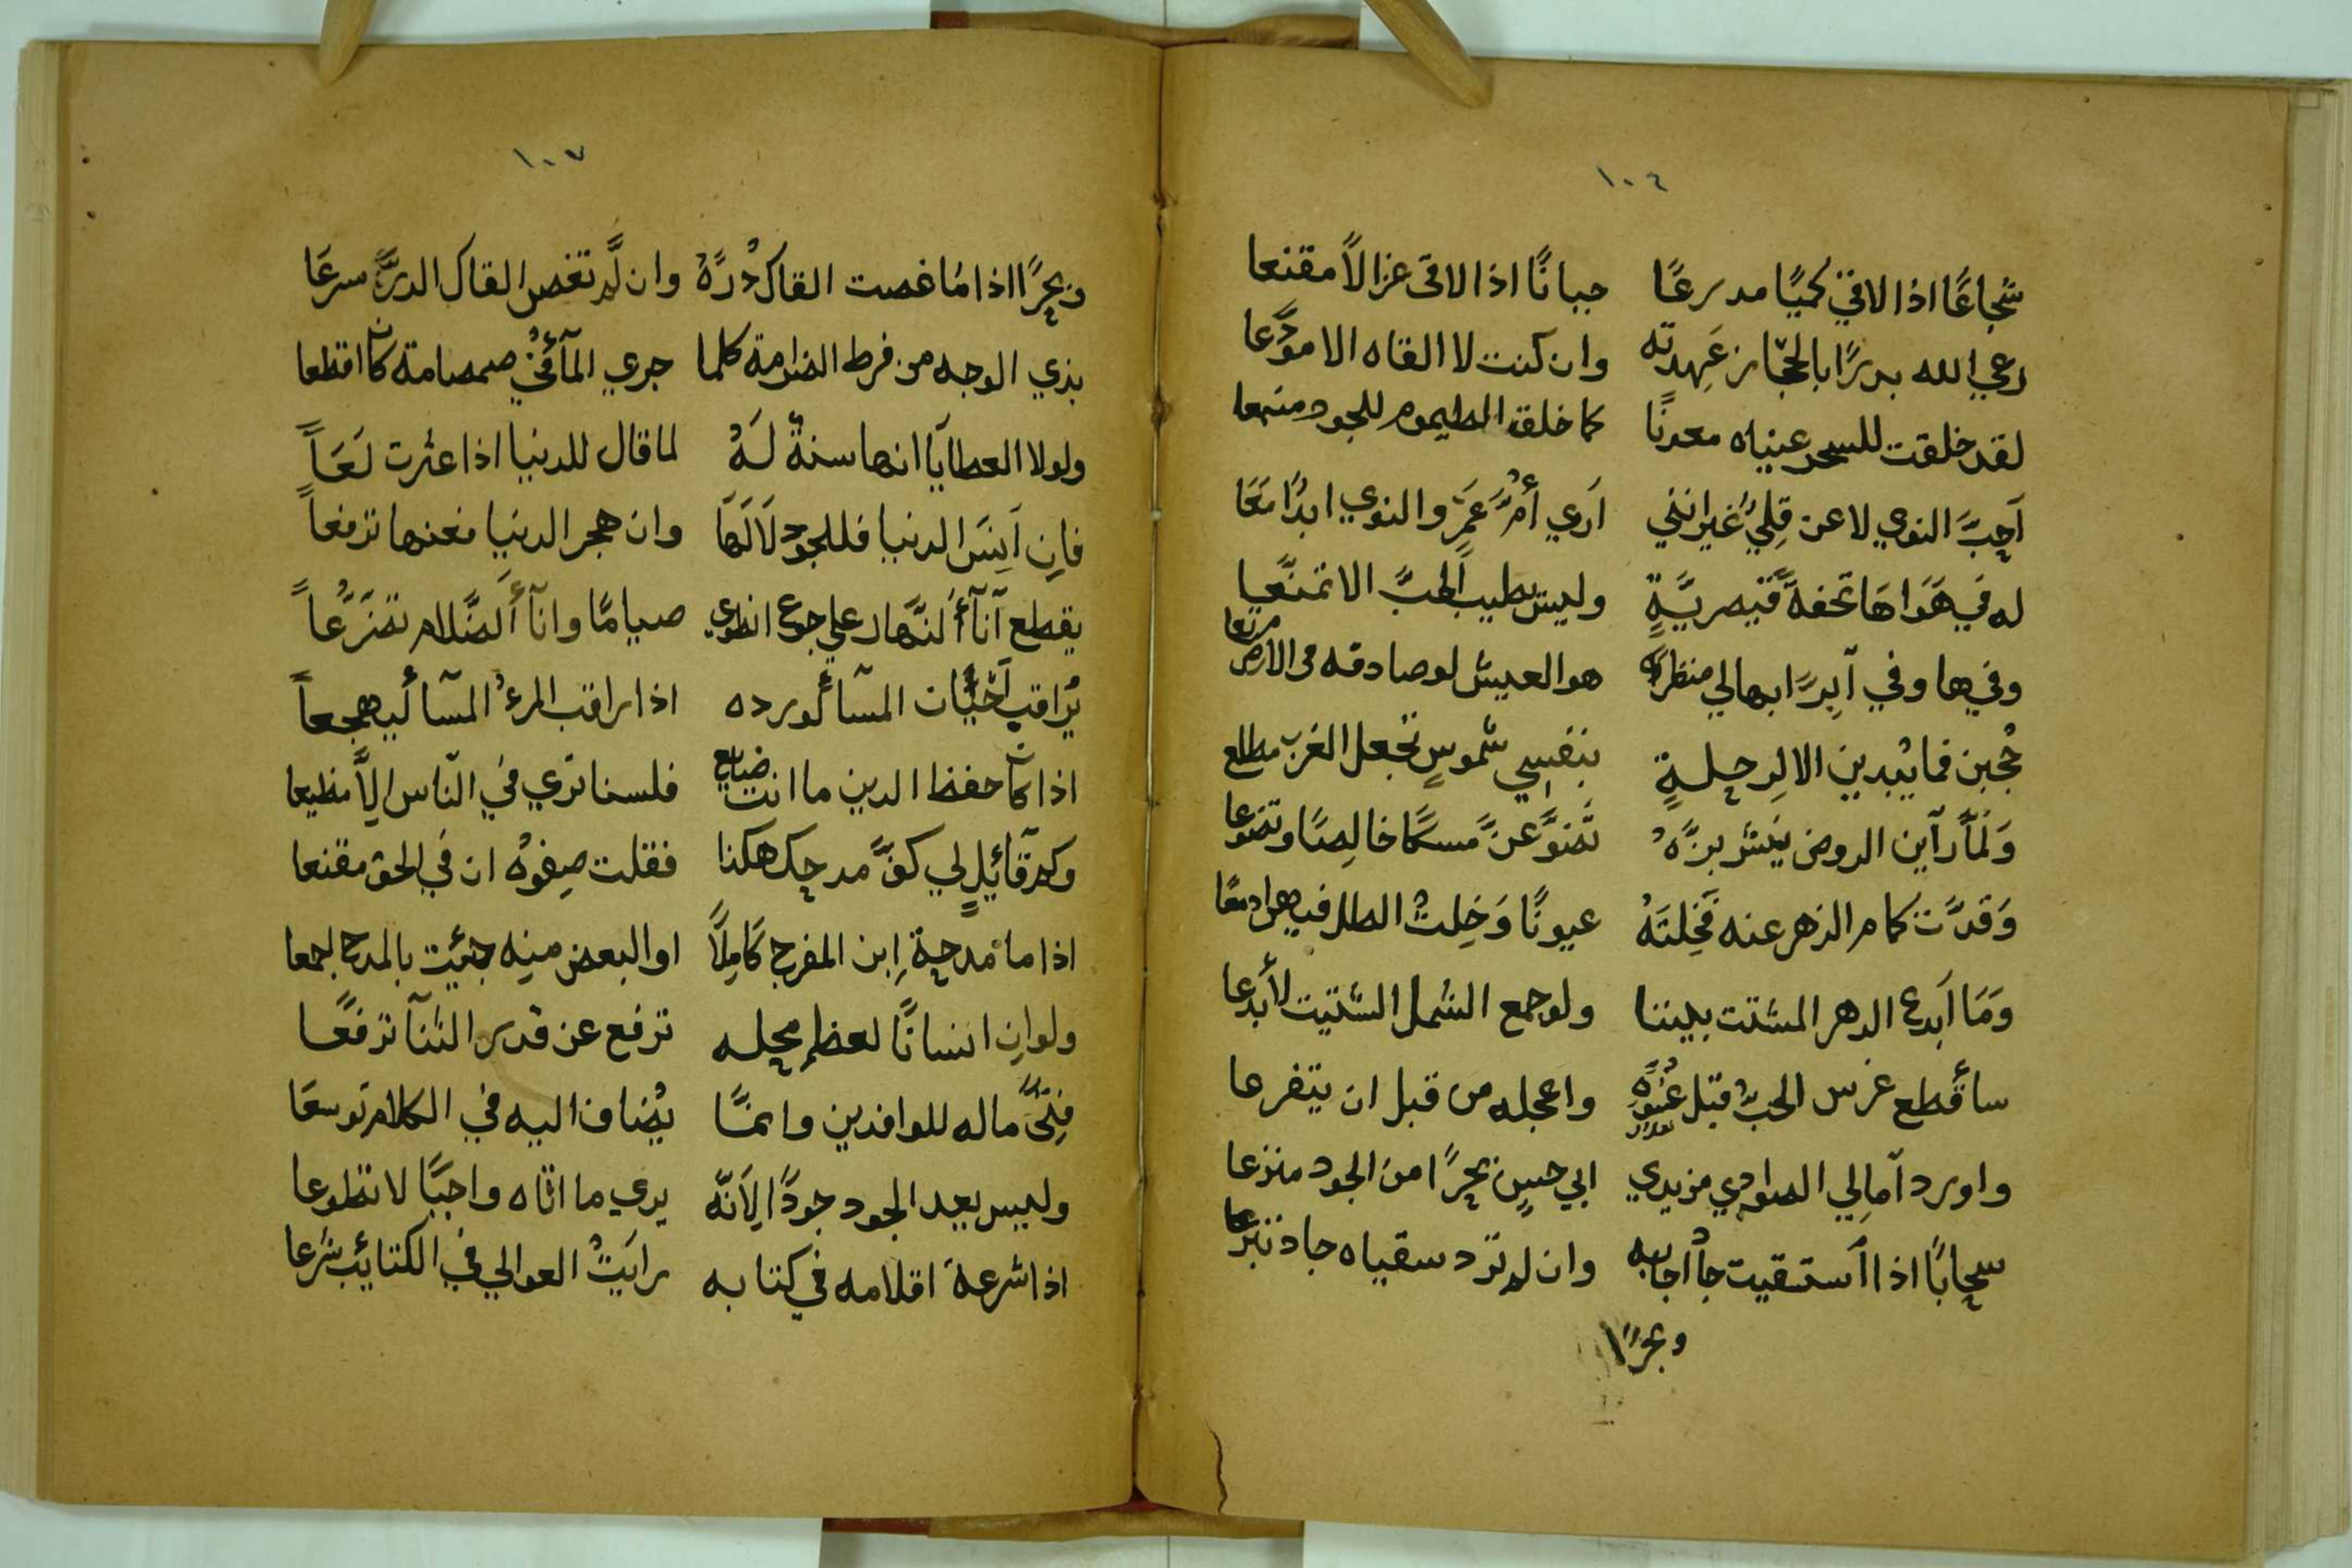 ١٠٦
شجاعًا اذا لاقيٰ كميًا مدرعًا جبانًا اذا لاقى غزالاً مقنعا
رعي الله بدرًا بالحجاز عَهِدته وان كنت لا القاه الا مودَّعا
لقد خلقت للسحر عيناه معدنًا كما خلق الطيموم للجود منبعا
آحبَّ النوي لا عن قِليً غيرانني آري أمَّ عَمرٍ والنوي ابدًا مَعَا
له في هَوَاهَا تحفةً قيصريَّةٍ وليس يطيب الحبَّ الا تمنّعا
وفيها وفي آبدرًا بها لي منظر هو العيش لو صادقه في الارض مرتعا
حُجبن فما يُبدين الا لِرحلةٍ بنفسِي شموسٍ تجعل الغرب مطلع
وَلمّا رآين الروض يَنشر بزَّهُ تَضوَّعنَ مسكًا خالِصًا وتضوعا
وَقدَّت كمام الزهر عنه فَخِلتَهُ عيونًا وَخِلتُ الطل فيهن ادمعًا
وَمَا آبدع الدهر المشتت بيننا ولو جمع الشمل الشتيت لأبدعا
سأقطع غرس الحبّ قبل واعجله من قبل ان يتفرعا
واورد آمالِي الصوادي مزيدي ابي حسنٍ بحرًا من الجود منزعا
سحابًا اذا استسقيت جاأ جابه وان لم ترد سقياه جاد تبرعا
وبحرًا
١٠٧
وبحرًا اذا مُا غصت القاك دُرَّهُ وان لَّم تغص القاك الدرَّ سرعَا
بذي الوجه من فرط الضرامة كلما جري المآءُ في صمصامة كان اقطعا
ولولا العطآيا انها سنةٌ لَهُ لما قال للدنيا اذا عثرت لَعَاً
فإن آبَسَ الدنيا فللجود لاَ لَهَا وان هجر الدنيا فعنها ترفعاً
يقطع آنآأَ لنَّهار علي جوع انطوي صيامًا وانآأَ لضَّلام تضَرُّعاً
يُراقب آخرَيات المسآأ لورده اذا راقب المرءُ المسآأ ليهجعاً
اذا كان حفظ الدين ما انت ضايع فلسنا تري في النّاس إلاَّ مظيعا
وكم قآئِلٍ لي كفَّ مدحك هكذا فقلت صِفوهُ ان في الحق مقنعا
اذا ما مدحة إبن المفرج كَامِلاً او البعض منه جئيت بالمدح اجمعا
ولوان انسانًا لعظم محله ترفع عن قدر الثنآ ترفعًا
فتًى ماله للوافدين وانمّا يُضاف اليه في الكلام توسعَا
وليس يعد الجود جودًا لِآنّه يري ما اتاه واجبًا لا تطوعا
اذا شرعة اقلامه في كتابه رايَتُ العوالي في الكتائِب شرعا